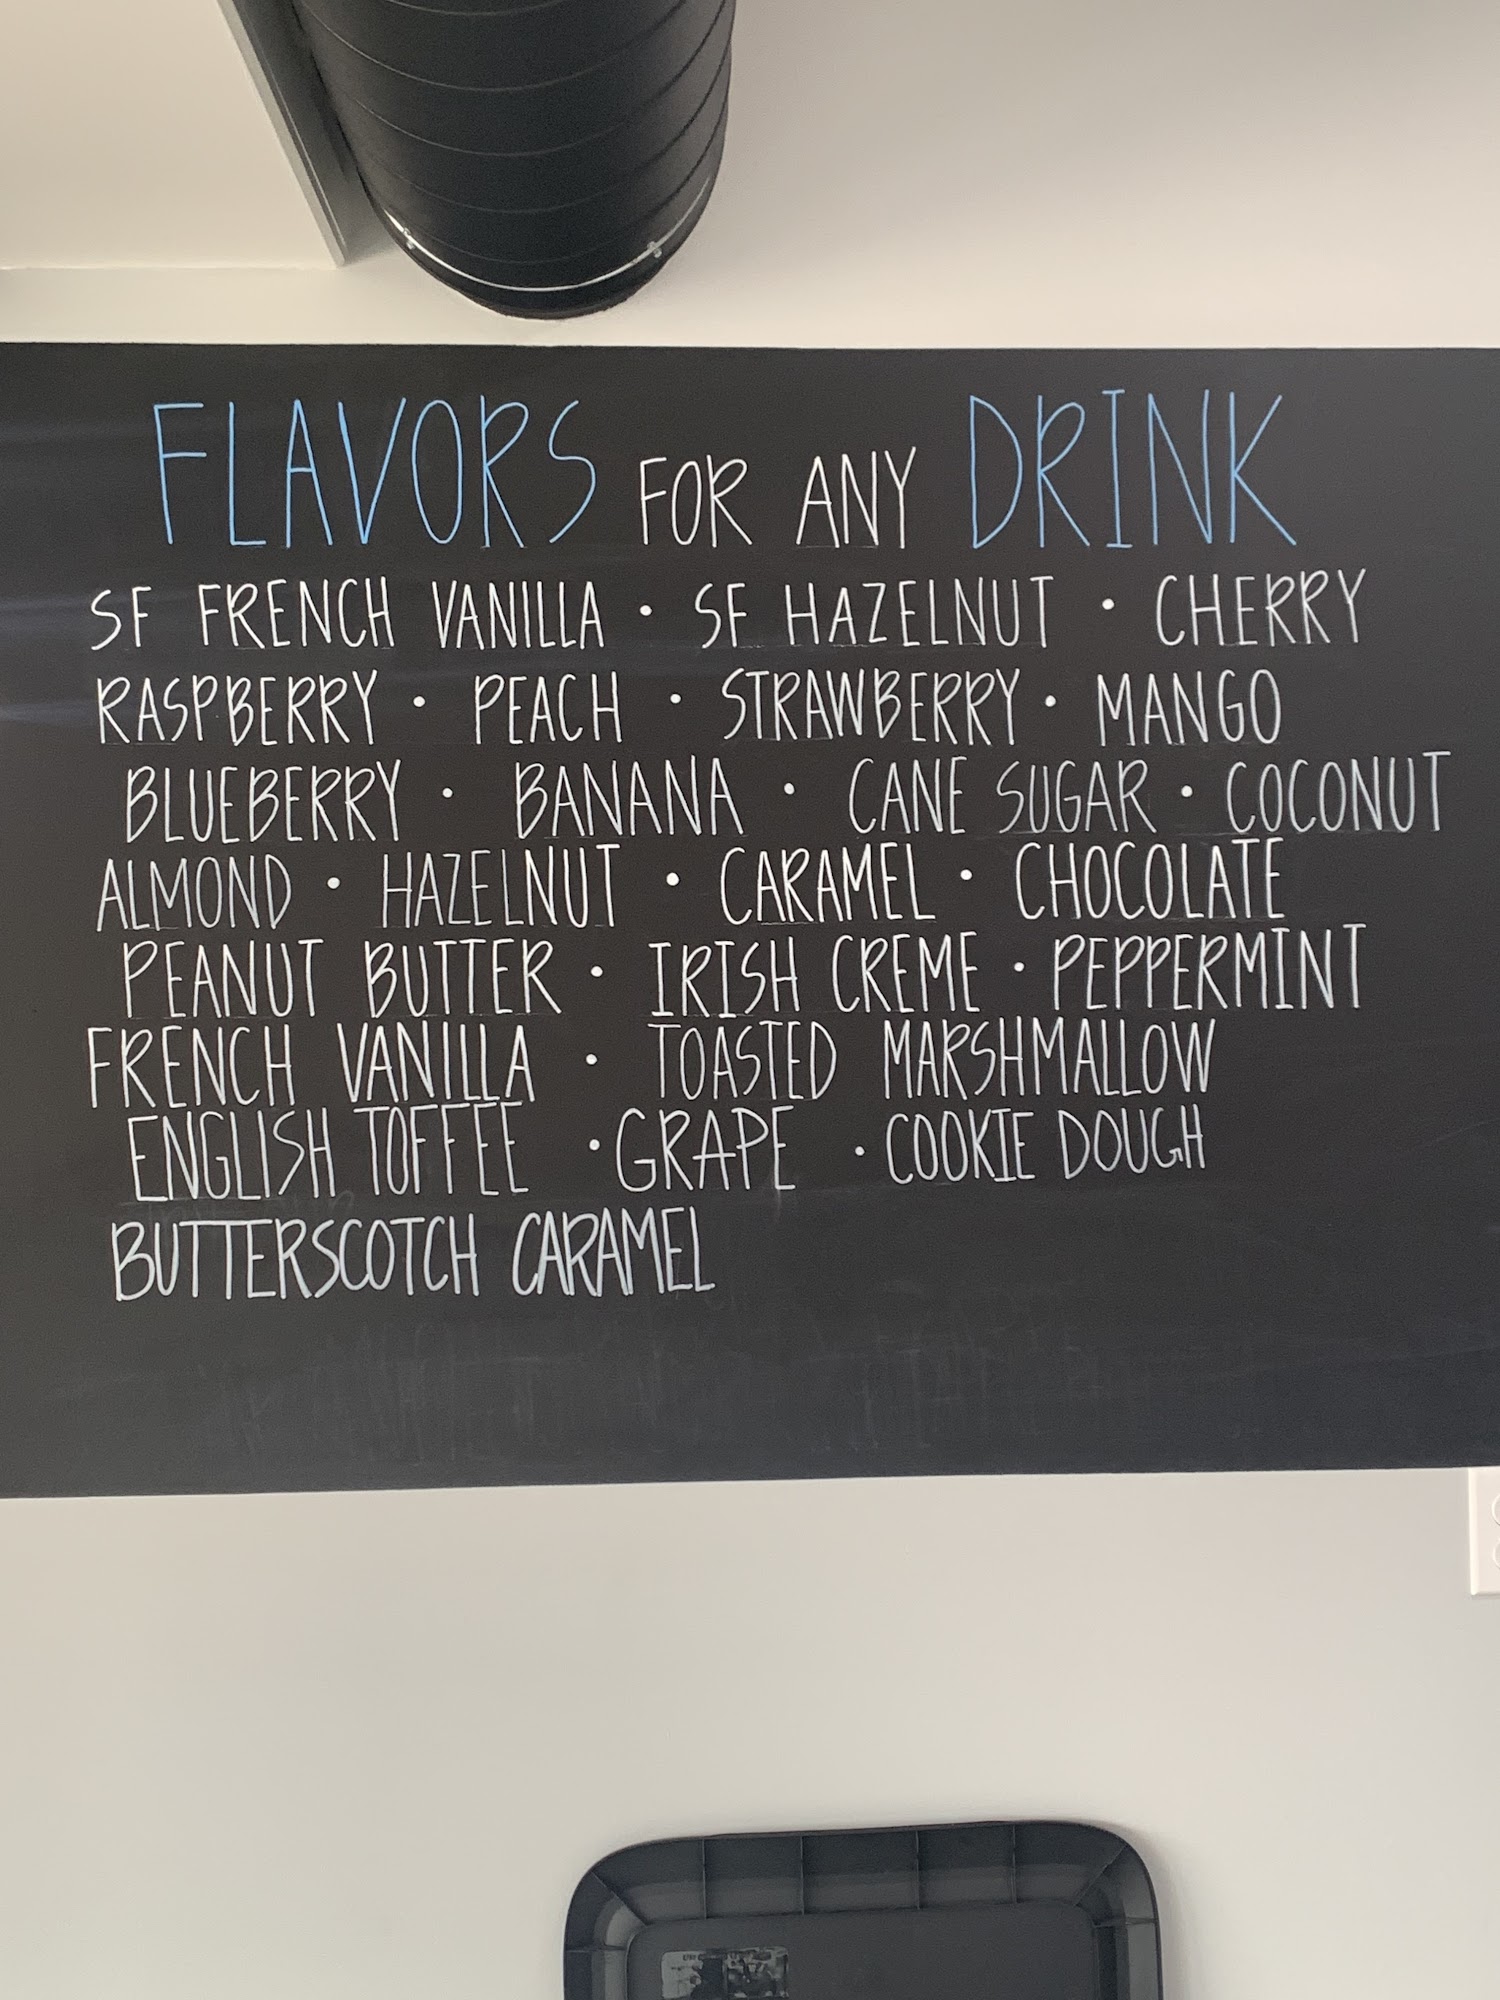 FLAVORS FOR ANY DRINK
SF FRENCH VANILLA • SF HAZELNUT • CHERRY
RASPBERRY • PEACH • STRAWBERRY • MANGO
BLUEBERRY • BANANA • CANE SUGAR • COCONUT
ALMOND • HAZELNUT • CARAMEL • CHOCOLATE
PEANUT BUTTER • IRISH CREME • PEPPERMINT
FRENCH VANILLA • TOASTED MARSHMALLOW
ENGLISH TOFFEE • GRAPE • COOKIE DOUGH
BUTTERSCOTCH CARAMEL